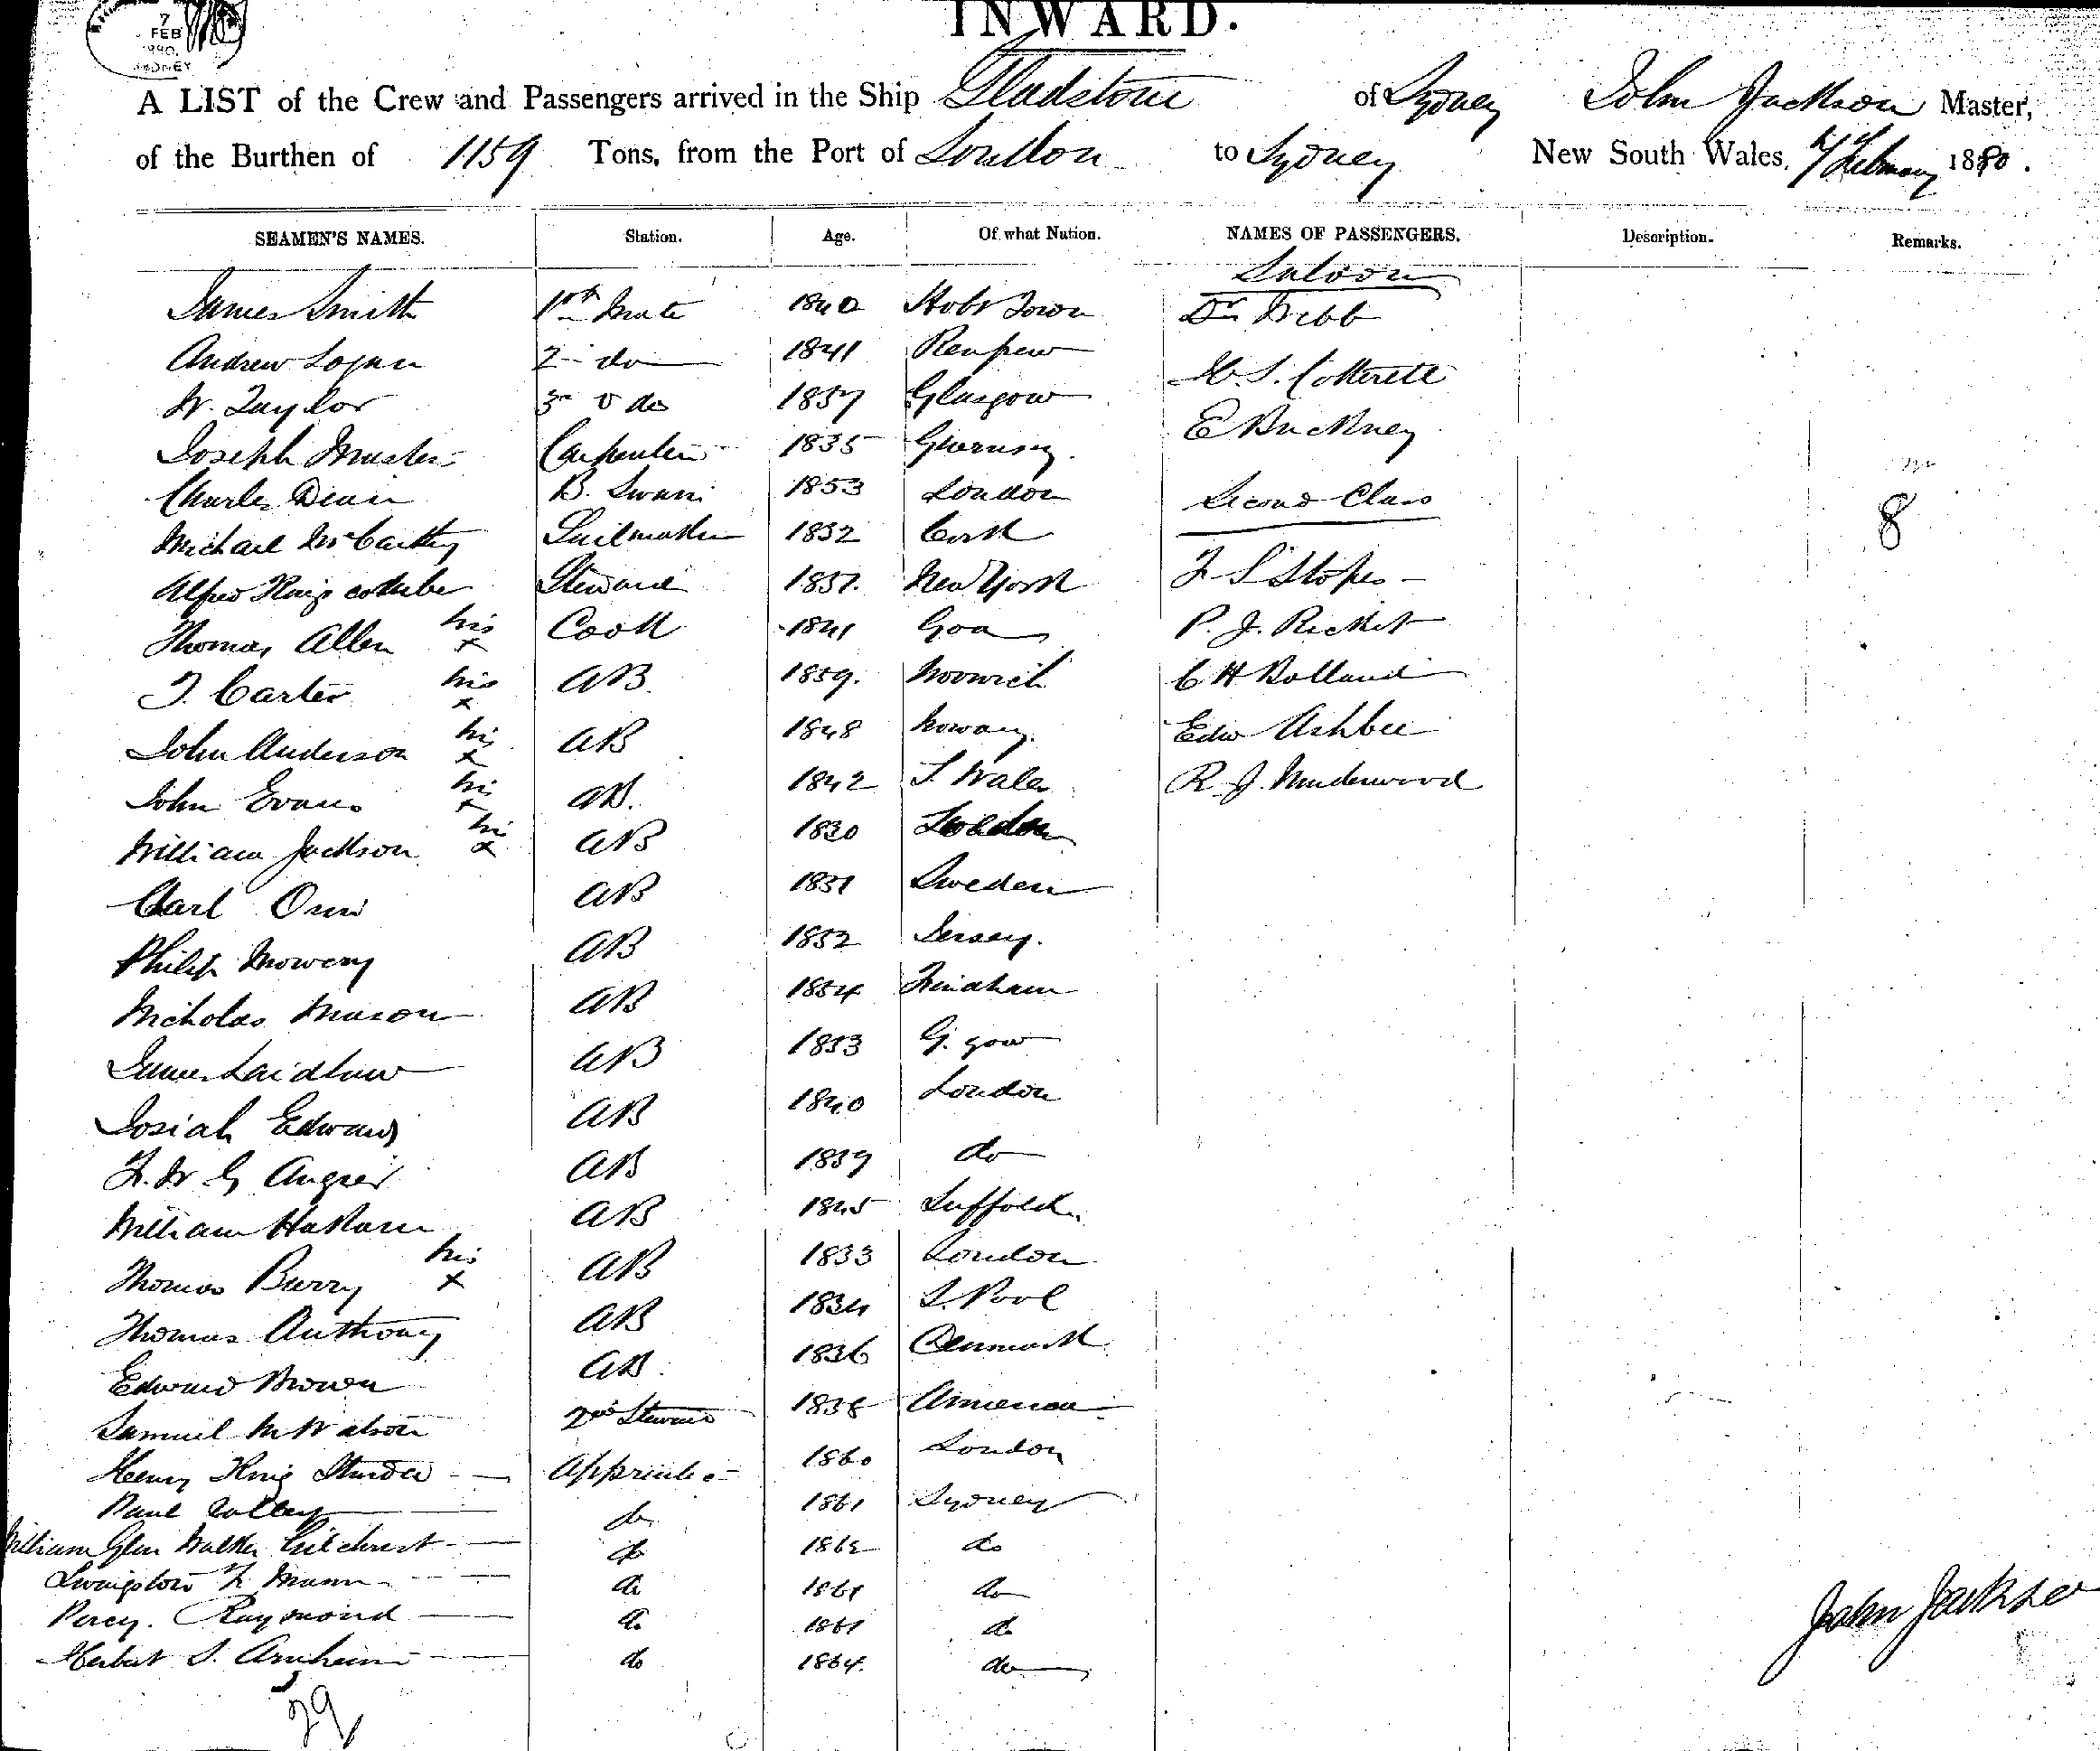 7
FEB
1880
SYDNEY
INWARD.
A LIST of the Crew and Passengers arrived in the Ship Gladstone of Sydney John Jackson Master,
of the Burthen of 1159 Tons, from the Port of London to Sydney New South Wales, 7 February 1880.
SEAMEN'S NAMES. Station. Age. Of what Nation. NAMES OF PASSENGERS. Description. Remarks.
Saloon
James Smith 1st Mate 1840 Hobt Town Dr Webb
Andrew Logan 2 do 1841 Renfrew
Cotterell
W. Taylor 3rd do 1857 Glasgow
E Buckney
Joseph Carpenter 1835 Guernsey
Charles B. Swain 1853 London Second Class
8
Michael McCarthy Sailmaker 1832 Cork
Alfred Steward 1857 New York F S Stopes
Thomas Allen his x Cook 1841 Goa P. J. Ricket
T. Carter his x AB 1859 Norwich C H Bolland
John Anderson his x AB 1848 Norway Edw Ashbee
John Evans his x AB 1842 S. Wales R. J. Underwood
William Jackson his x AB 1830 London
Carl AB 1831 Sweden
Philip Mowery AB 1852 Jersey
Nicholas Mason AB 1854 Hindham
James Laidlaw AB 1853 G. gow
Josiah Edwards AB 1840 London
F. W G Angier AB 1839 do
William AB 1845 Suffolk
Thomas Barry his x AB 1833 London
Thomas Anthony AB 1834 L. Pool
Edward Brown AB 1836 Denmark
Samuel M Watson 2nd Steward 1838 America
Henry King Apprentice 1860 London
Paul Colley do 1861 Sydney
William Glen Walker Gilchrist do 1862 do
Livingston F Mann do 1861 do
Percy Raymond do 1861 do
Herbert S. Arnheim do 1864 do
John Jackson
29